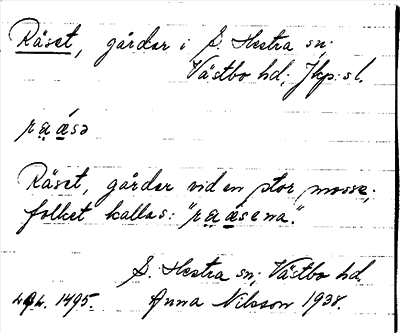 Råset, gårdar i S. Hestra sn;
Västbo hd; Jkp: sl.
Råset, gårdar vid en stor mosse;
folket kallas:
S. Hestra sn; Västbo hd
1495. Anna Nilsson 1938.